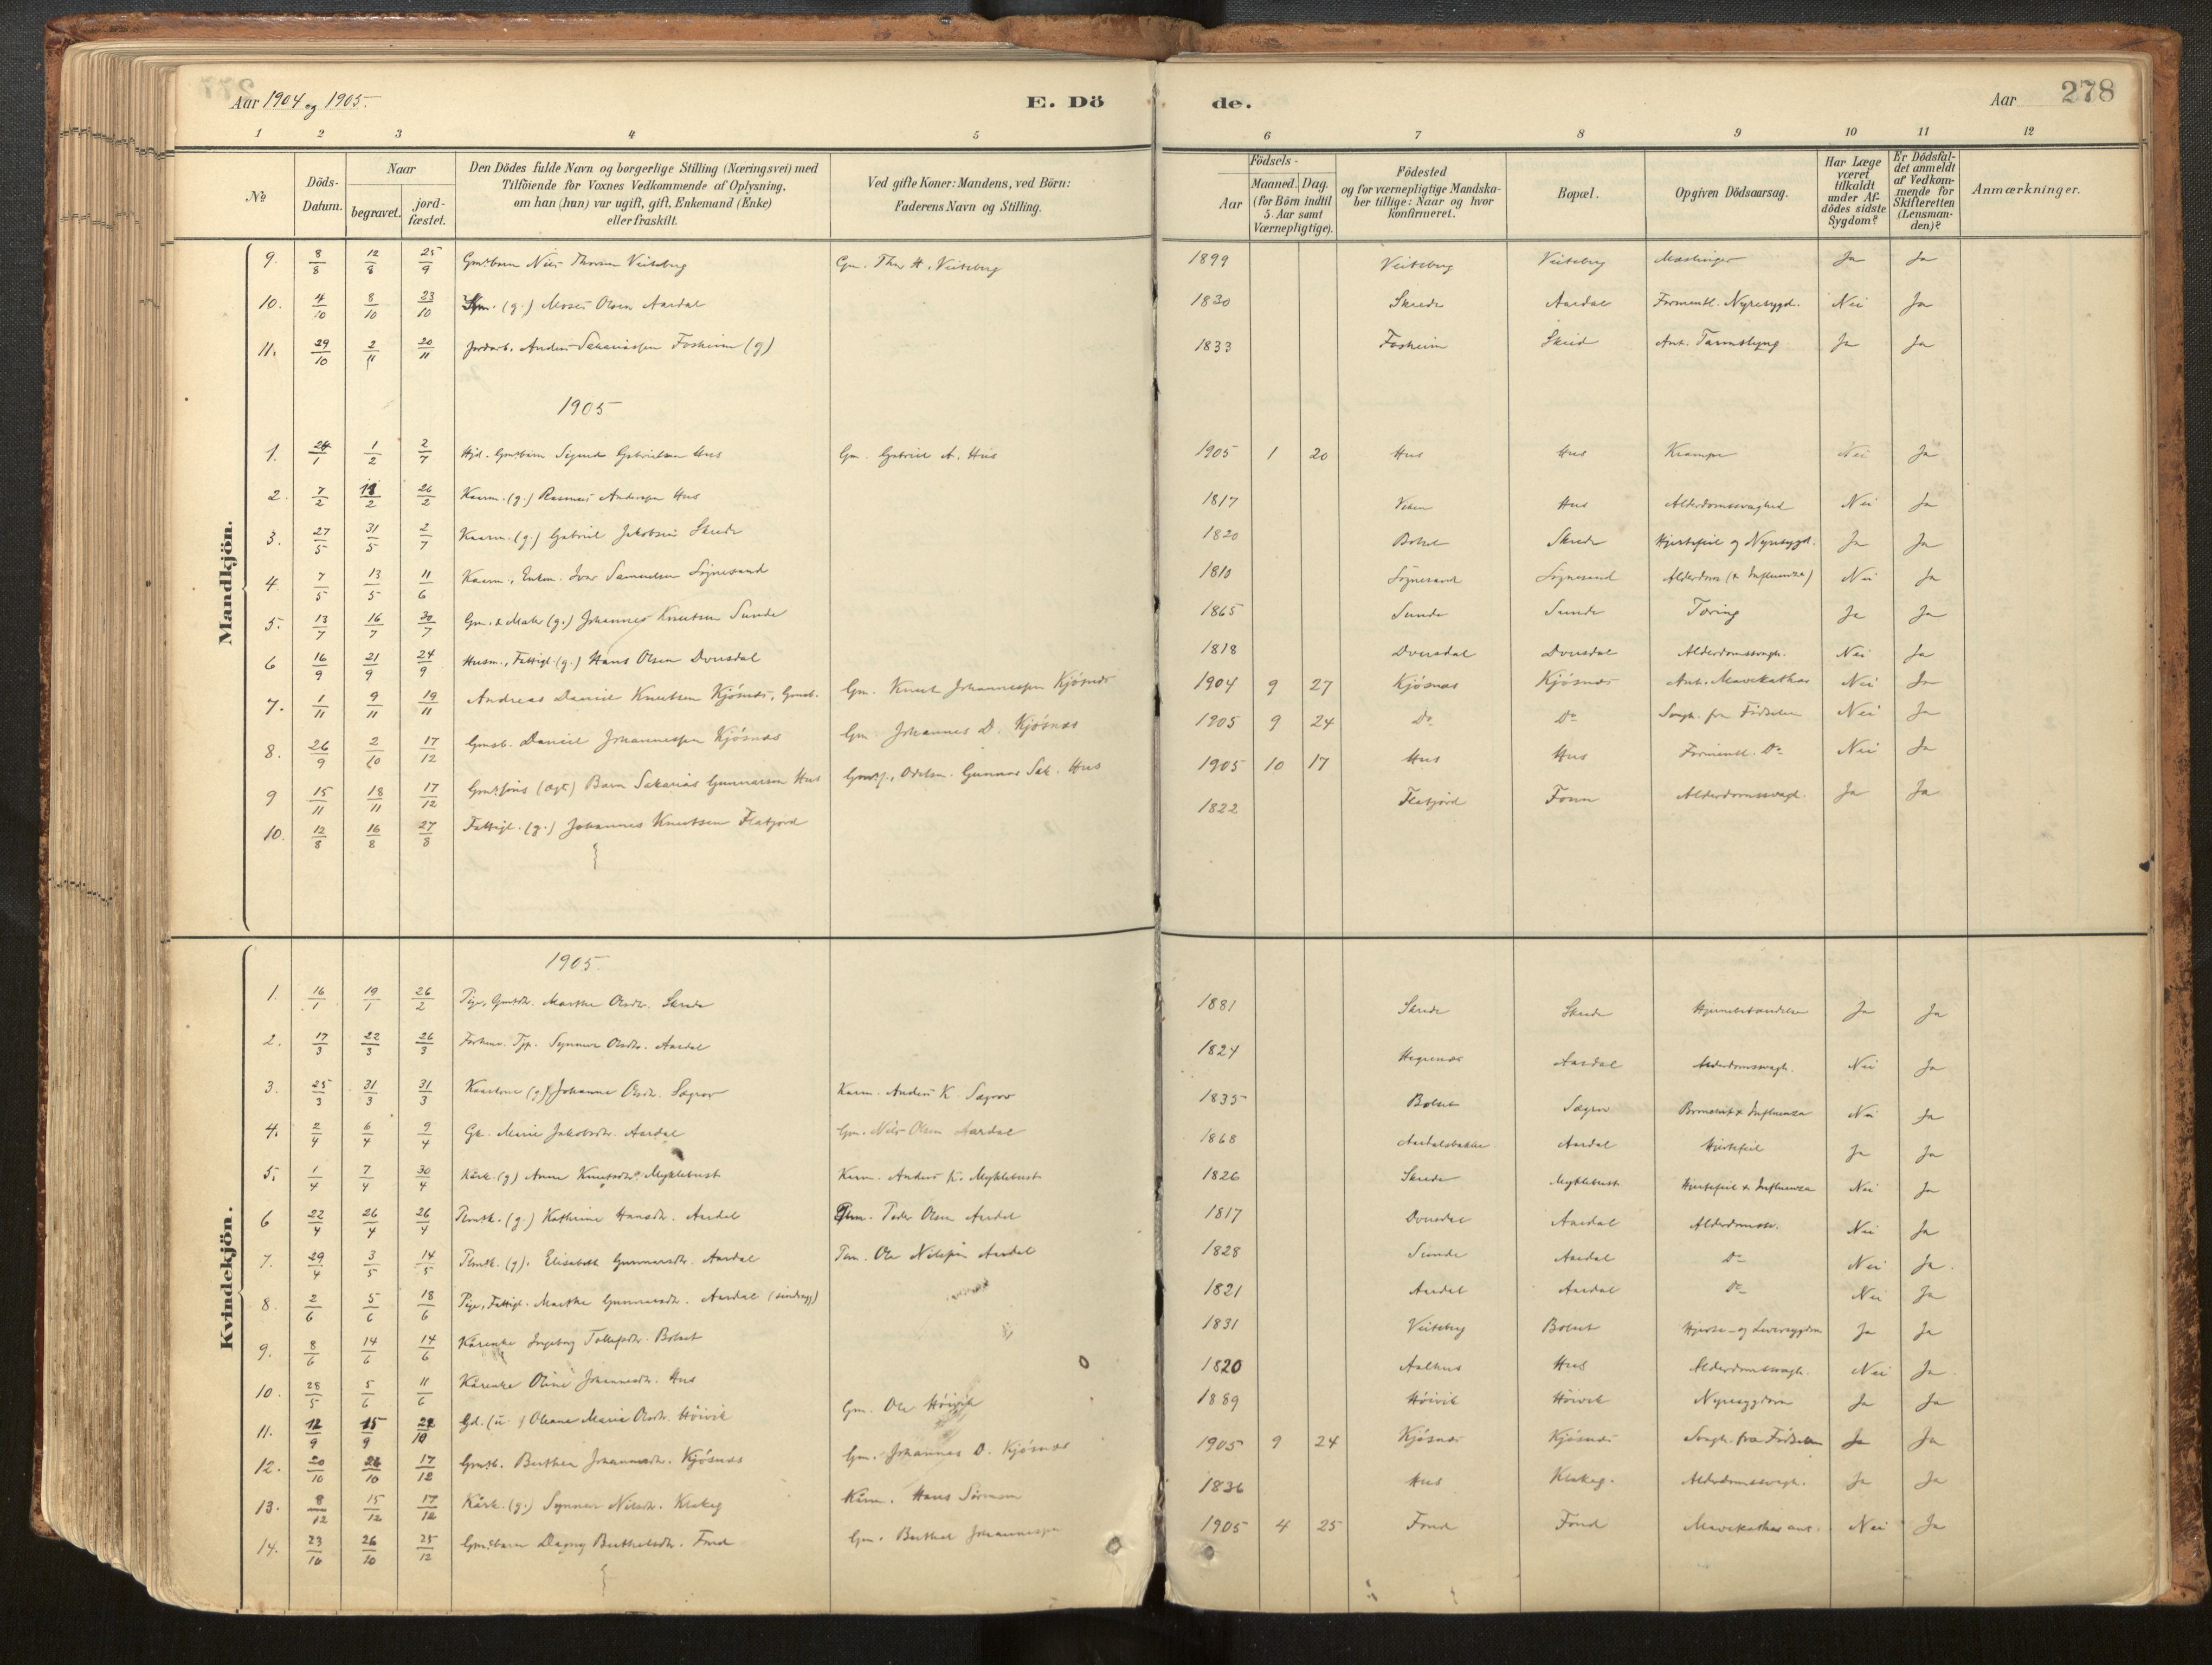 Aar 1904 og 1905.
E. Döde.
Aar
278
1 2 3 4 5 6 7 8 9 10 11 12
№
Döds-Datum.
Naar
begravet.
jord-fæstet.
Den Dödes fulde Navn og borgerlige Stilling (Næringsvei) med
Tilföiende for Voxnes Vedkommende af Oplysning,
om han (hun) var ugift, gift, Enkemand (Enke)
eller fraskilt.
Ved gifte Koner: Mandens, ved Börn:
Faderens Navn og Stilling.
Födsels-
Aar
Maaned. Dag.
(for Börn indtil
5 Aar samt
Værnepligtige).
Födested
og for værnepligtige Mandska-
ber tillige: Naar og hvor
konfirmeret.
Bopæl.
Opgiven Dödsaarsag.
Har Læge
været
tilkaldt
under Af-
dödes sidste
Sygdom?
Er Dödsfal-
det anmeldt
af Vedkom-
mende for
Skifteretten
(Lensman-
den)?
Anmærkninger.
Mandkjön.
9. 8/8 12/8 25/9 Gmsbarn Nils Thorsen Veiteberg Gm. Thor H. Veiteberg 1899 Veiteberg Veiteberg Mæslinger Ja Ja
10. 4/10 8/10 23/10 (g.) Moses Olsen Aardal 1830 Skrede Aardal Formentl. Nyresygd. Nei Ja
11. 29/10 2/11 20/11 Jordarb. Anders Sakariassen Fosheim (g) 1833 Fosheim Skeid Ant. Tarmslyng Ja Ja
1905
1. 24/1 1/2 2/7 Hjd. Gmsbarn Sigurd Gabrielsen Hus Gm. Gabriel A. Hus 1905 1 20 Hus Hus Krampe Nei Ja
2. 7/2 11/2 26/2 Kaarm. (g.) Rasmus Anderssen Hus 1817 Hus Alderdomssvaghed Nei Ja
3. 27/5 31/5 2/7 Kaarm. (g.) Gabriel Jakobsen Skrede 1820 Bolset Skrede Hjertefeil og Nyresygd. Ja Ja
4. 7/5 13/5 11/6 Kaarm., Enkem. Ivar Samuelsen Sögnesand 1810 Sögnesand Sögnesand Alderdom (& Influenza) Nei Ja
5. 13/7 16/7 30/7 Gm. & Maler (g.) Johannes Knutsen Sunde 1865 Sunde Sunde Tæring Ja Ja
6 16/9 21/9 24/9 Husm., Fattigl. (g.) Hans Olsen Dvergsdal 1818 Dvergsdal Dvergsdal Alderdomssvagh. Nei Ja
7. 1/11 9/11 19/11 Andreas Daniel Knutsen Kjösnæs, Gmsb. Gm. Knut Johannessen Kjösnæs 1904 9 27 Kjösnæs Kjösnæs Ant. Mavekathar Nei Ja
8. 26/9 2/10 17/12 Gmsb. Daniel Johannessen Kjösnæs Gm. Johannes D. Kjösnæs 1905 9 24 Do Do Svagh. fra Födselen Nei Ja
9 15/11 18/11 17/12 (ægt.) Barn Sakarias Gunnarsen Hus Gunnar Sak. Hus 1905 10 17 Hus Hus Formentl. Do Nei Ja
10. 12/8 16/8 27/8 Fattigl. (g.) Johannes Knutsen Flatjord 1822 Flatjord Fonn Alderdomssvagh. Ja Ja
Kvindekjön.
1905
1. 16/1 19/1 26/2 Pige, Gmsdtr. Marthe Olsdtr. Skrede 1881 Skrede Skrede Hjernebetændelse Ja Ja
2. 17/3 22/3 26/3 Forhenv. Tjp. Synneve Olsdtr. Aardal 1824 Hegrenæs Aardal Alderdomssvagh. Nei Ja
3. 25/3 31/3 31/3 Kaarkone (g.) Johanne Olsdtr. Sægrov Kaarm. Anders K. Sægrov 1835 Bolset Sægrov Bronchit & Influenza Nei Ja
4. 2/4 6/4 9/4 Gk. Marie Jakobsdtr. Aardal Gm. Nils Olsen Aardal 1868 Aardalsbakke Aardal Hjertefeil Ja Ja
5. 1/4 7/4 30/4 Kårk. (g) Anne Knutsdtr. Myklebust Kaarm. Anders K. Myklebust 1826 Skrede Myklebust Hjertefeil & Influenza Nei Ja
6 22/4 26/4 26/4 (g.) Kathrine Hansdtr. Aardal Peder Olsen Aardal 1817 Dvergsdal Aardal Alderdomssv. Nei Ja
7. 29/4 3/5 14/5 (g). Elisabeth Gunnarsdtr. Aardal Ole Nilssen Aardal 1828 Sunde Aardal Do Nei Ja.
8. 2/6 5/6 18/6 Pige, Fattigl. Marthe Gunnarsdtr. Aardal (sindssyg) 1821 Aardal Aardal Do Nei Ja
9. 8/6 14/6 14/6 Kårenke Ingeborg Tollefsdtr. Bolset 1831 Veiteberg Bolset Hjerte- og Leversygdom Ja Ja
10. 28/5 5/6 11/6 Kårenke Oline Johannesdtr. Hus 1820 Aalhus Hus Alderdomssvagh. Nei Ja
11. 12/9 15/9 22/10 Gd. (u.) Oleane Marie Olsdtr. Höivik Gm. Ole Höivik 1889 Höivik Höivik Nyresygdom Ja Ja
12. 20/10 26/10 17/12 Gmsb. Berthea Johannesdtr. Kjösnæs Gm. Johannes D. Kjösnæs 1905 9 24 Kjösnæs Kjösnæs Svagh. fra Födselen Ja Ja
13. 8/12 15/12 17/12 Kårk. (g.) Synneve Nilsdtr. Klakeg Kårm. Hans Sörensen 1836 Hus Klakeg. Alderdomssvagh. Ja Ja
14. 23/10 26/10 25/12 Gmsbarn Dagny Berthelsdtr. Fond Gm. Berthel Johannessen 1905 4 25 Fond Fond Mavekathar ant. Nei Ja